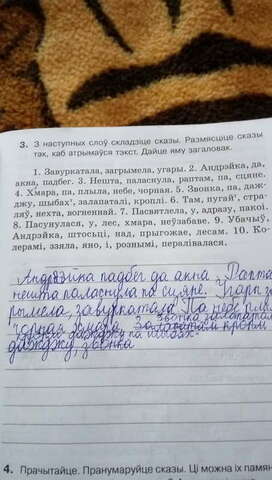 3. З наступных слоў складзіце сказы. Размясціце сказы
так, каб атрымаўся тэкст. Дайце яму загаловак.
1. Завуркатала, загрымела, угары. 2. Андрэйка, да,
акна, падбег. 3. Нешта, паласнула, раптам, па, сцяне.
4. Хмара, па, плыла, небе, чорная. 5. Звонка, па, даж-
джу, шыбах, залапаталі, кроплі. 6. Там, пугай, стра-
ляў, нехта, вогненнай. 7. Пасвятлела, у, адразу, пакоі.
8. Пасунулася, у, лес, хмара, неўзабаве. 9. Убачыў,
Андрэйка, штосьці, над, прыгожае, лесам. 10. Ко-
лерамі, ззяла, яно, і, рознымі, пералівалася.
Андрэйка падбег да акна. Рапта
нешта паласнула па сцяне. Угары заг
рымела, завуркатала. Па небе плы
чорная хмара. Звонка залапатал
дажджу па шыбах
дажджу, звонка
4. Прачытайце. Пранумаруйце сказы. Ці можна іх памян